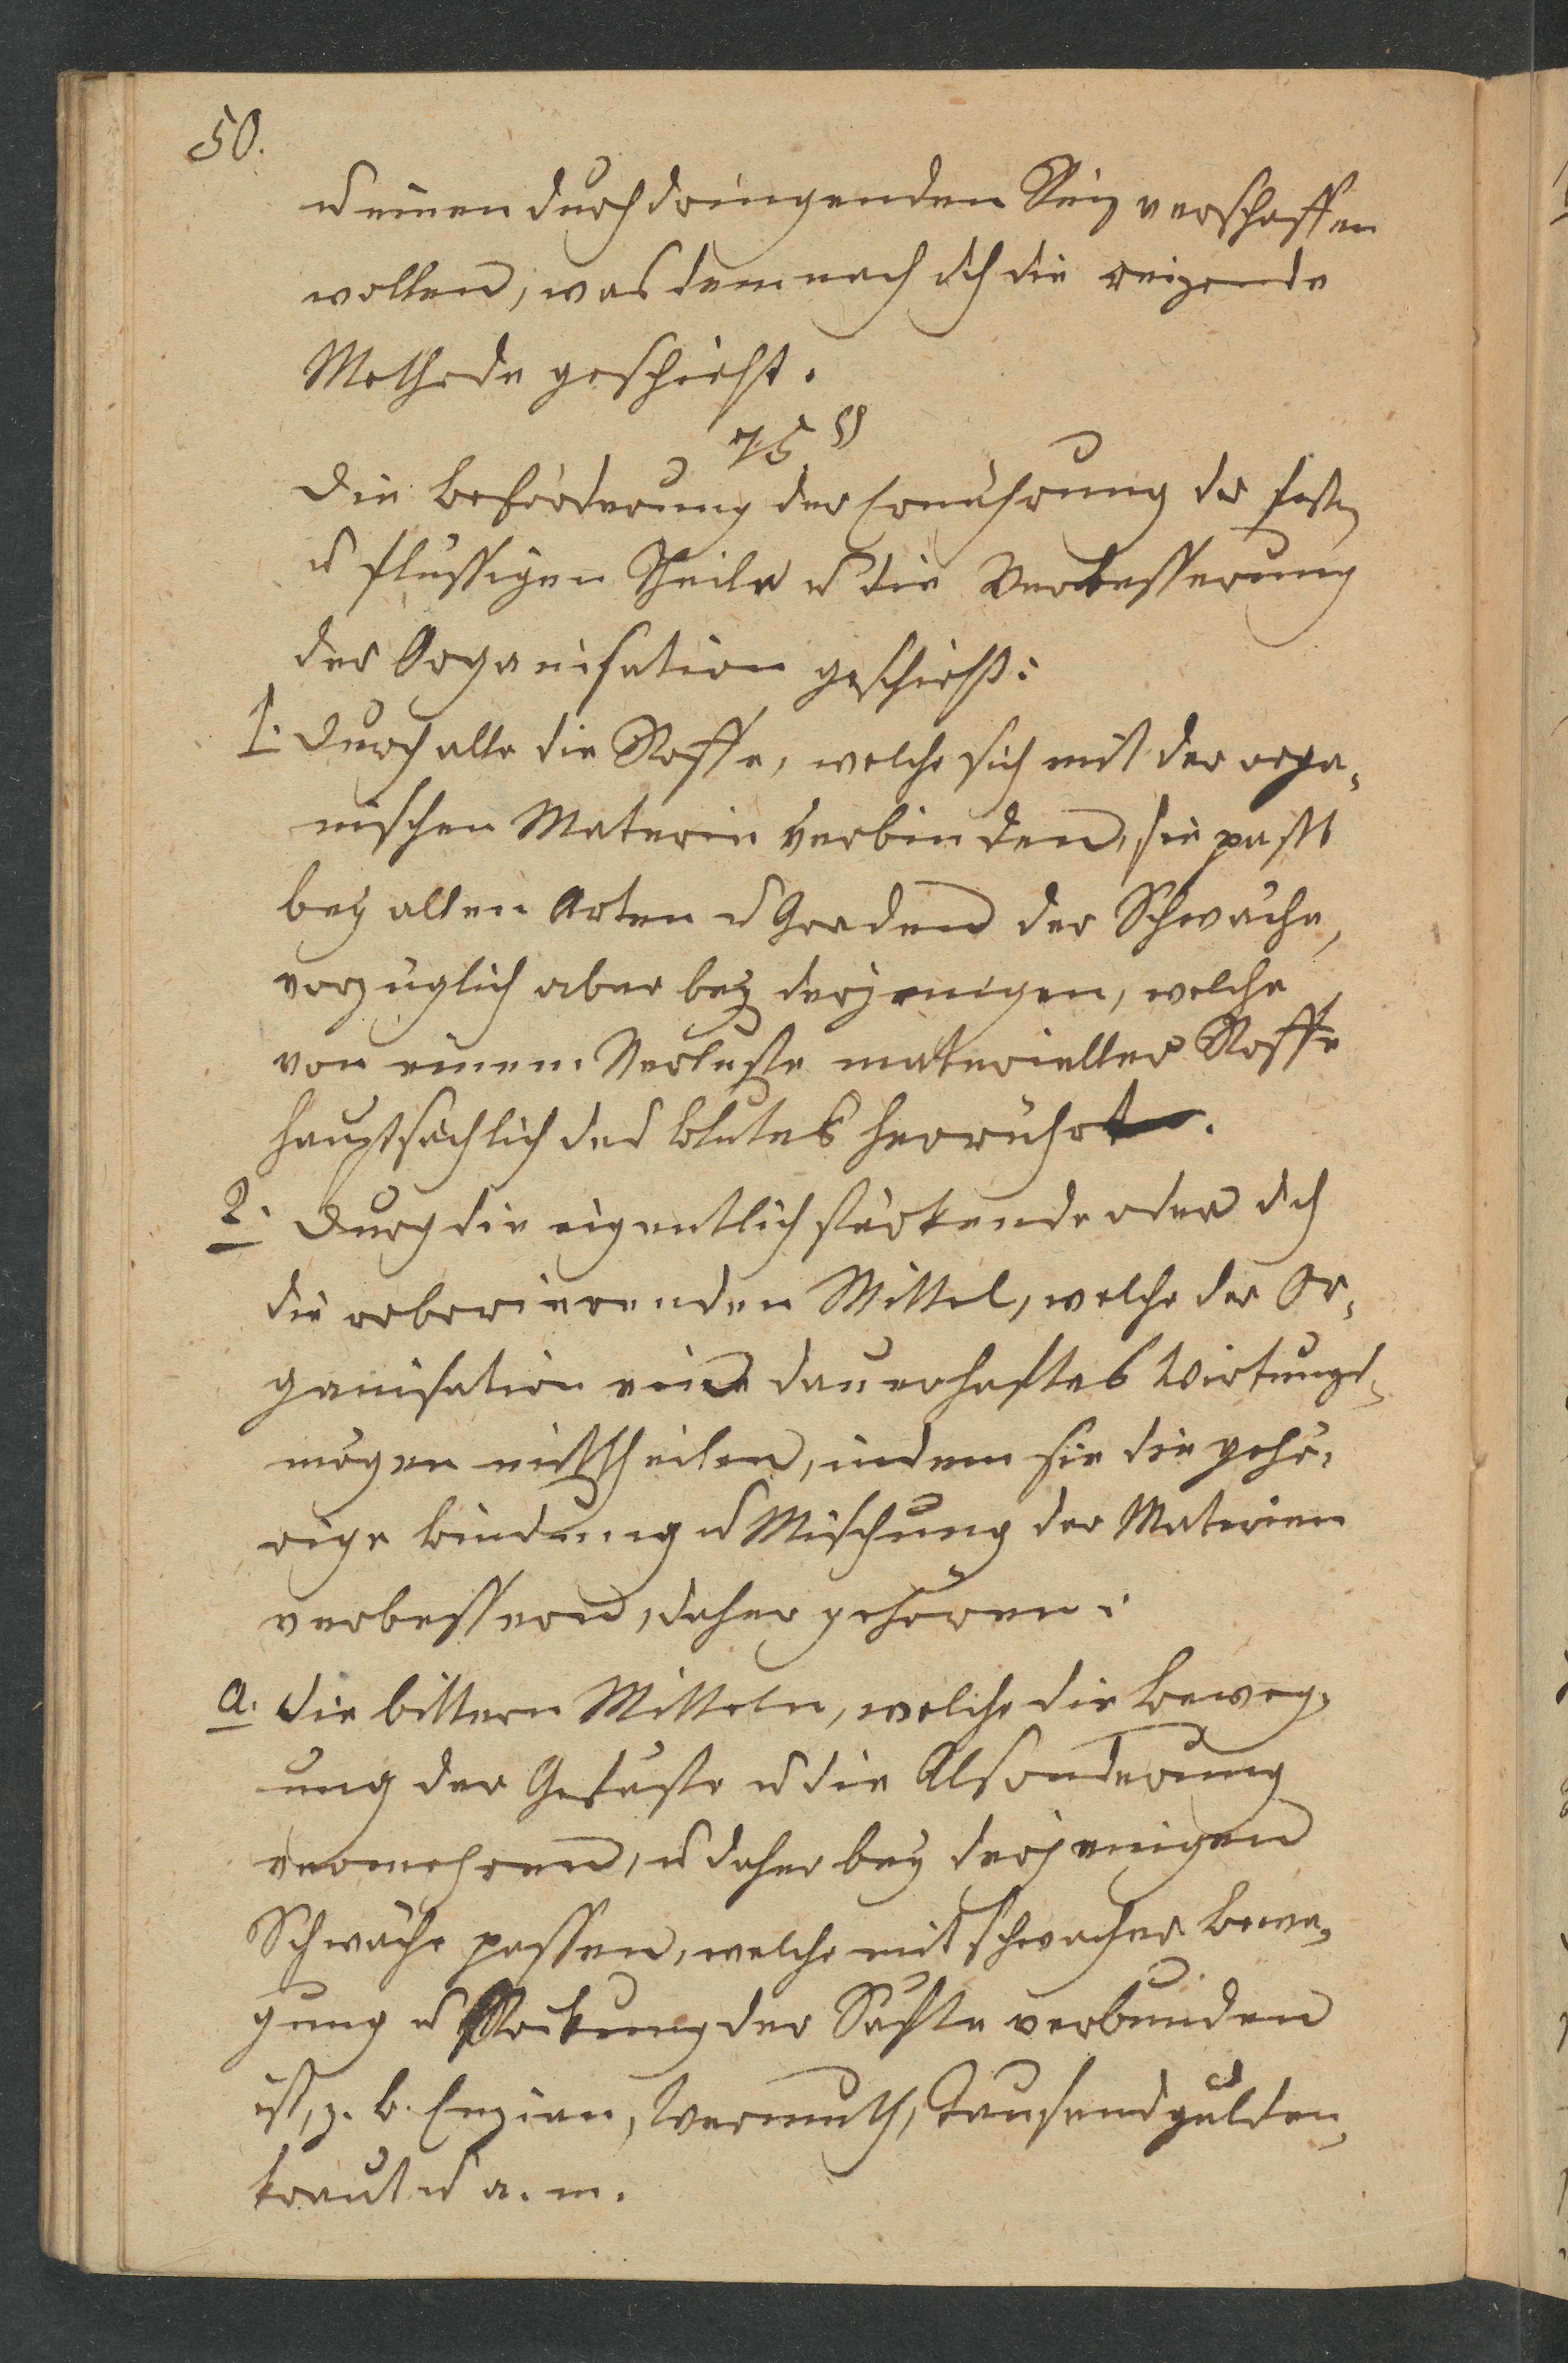 50.
u einen durchdringenden Reiz verschaffen
wollen, was demnach dch die reizende
Methode geschieht.
75 §
Die Beförderung der Ernährung der festen
u flüssigen Theile u die Verbesserung
der Organisation geschieht:
1. Durch alle die Stoffe, welche sich mit der orga-
nischen Materie verbinden, sie passt
bey allen Arten u Graden der Schwäche,
vorzüglich aber bey derjenigen, welche
von einem Verluste materieller Stoffe
hauptsächlich des Blutes herrührt.
2. Durch die eigentlich stärkende oder dch
die roborierenden Mittel, welche der Or-
ganisation eine dauerhaftes Wirkungs-
mögen mittheilen, indem sie die gehö-
rige Bindung u Mischung der Materien
verbessern, daher gehören:
a. die bittern Mitteln, welche die Beweg-
ung der Gefäße u die Absonderung
vermehren, u daher bey derjenigen
Schwäche passen, welche mit schwacher Bewe-
gung u Stockung der Säfte verbunden
ist, z. B. Enzian, Wermuth, Tausendgülden-
kraut u a. m.